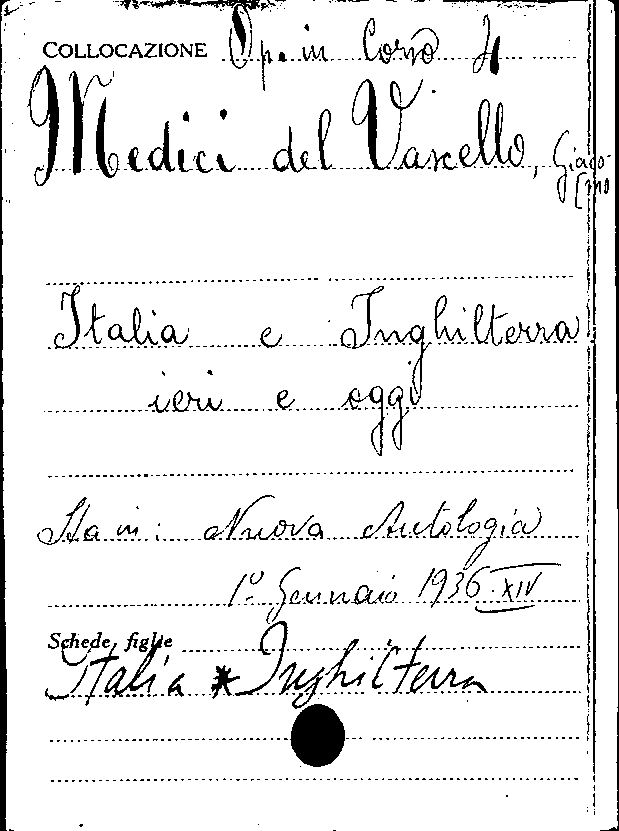 COLLOCAZIONE Op. in Corso 4
Medici del Vascello, Giaco-
[mo
Italia e Inghilterra
ieri e oggi
Sta in: Nuova Antologia
1º Gennaio 1936 XIV
Schede figlie
Italia * Inghilterra